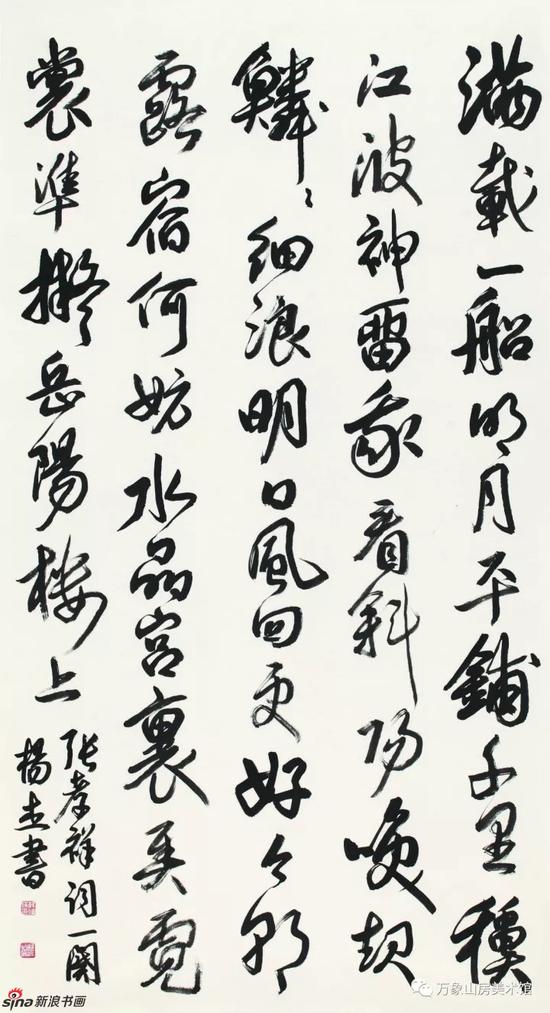 滿載一船明月平鋪千里穐
江波神畱我看斜阳喚起
鱗々細浪明日風回更好今朝
露宿何妨水晶宮裏奏霓
裳準擬岳陽樓上
張孝祥詞一闋
楊 書
sina新浪书画
万象山房美术馆